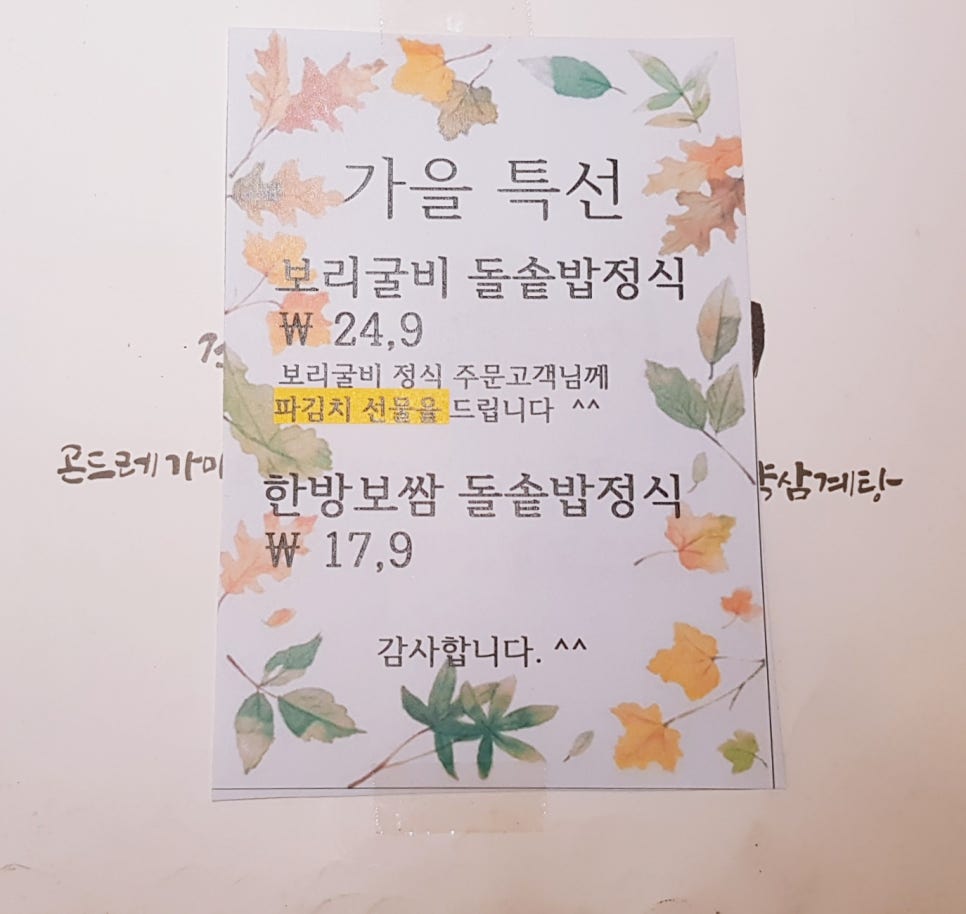 가을 특선
보리굴비 돌솥밥정식
₩ 24,9
보리굴비 정식 주문고객님께
파김치 선물을 드립니다 ^^
곤드레가마
삼계탕
한방보쌈 돌솥밥정식
₩ 17,9
감사합니다. ^^